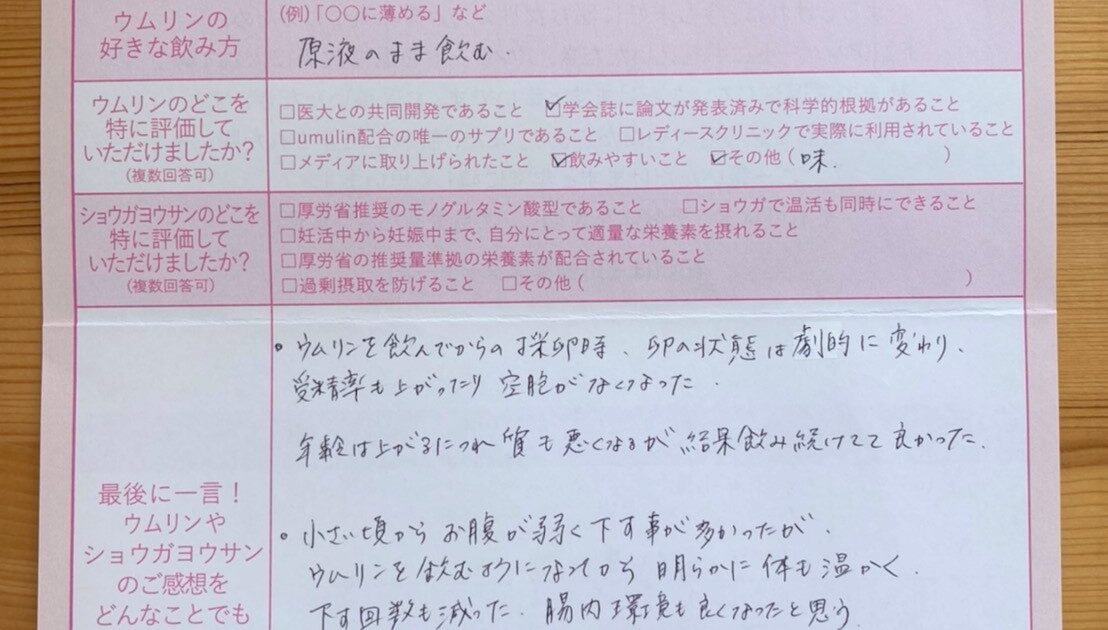 ウムリンの
好きな飲み方
(例)「〇〇に薄める」など
原液のまま飲む.
ウムリンのどこを
特に評価して
いただけましたか?
(複数回答可)
□医大との共同開発であること ☑学会誌に論文が発表済みで科学的根拠があること
□umulin配合の唯一のサプリであること □レディースクリニックで実際に利用されていること
□メディアに取り上げられたこと ☑飲みやすいこと ☑その他(味. )
ショウガヨウサンのどこを
特に評価して
いただけましたか?
(複数回答可)
□厚労省推奨のモノグルタミン酸型であること □ショウガで温活も同時にできること
□妊活中から妊娠中まで、自分にとって適量な栄養素を摂れること
□厚労省の推奨量準拠の栄養素が配合されていること
□過剰摂取を防げること □その他( )
最後に一言!
ウムリンや
ショウガヨウサン
のご感想を
どんなことでも
・ウムリンを飲んでからの採卵時、卵の状態は劇的に変わり、
受精率も上がったり空胞がなくなった.
年齢は上がるにつれ質も悪くなるが結果飲み続けてて良かった.
・小さい頃からお腹が弱く下す事が多かったが、
ウムリンを飲むようになってから明らかに体も温かく、
下す回数も減った.腸内環境も良くなったと思う